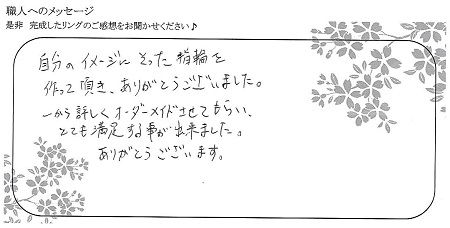 職人へのメッセージ
是非 完成したリングのご感想をお聞かせください♪
自分のイメージにそった指輪を
作って頂き、ありがとうございました。
一から詳しくオーダーメイドさせてもらい、
とても満足する事が出来ました。
ありがとうございます。